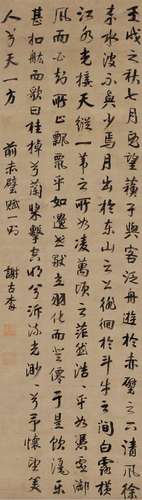 壬戌之秋七月既望蘇子與客泛舟遊於赤壁之下清風徐
來水波不興少焉月出於東山之上徘徊於斗牛之間白露橫
江水光接天縱一葦之所如凌萬頃之茫然浩浩乎如憑虛御
風而不知所止飄飄乎如遺世獨立羽化而登仙於是飲酒樂
甚扣舷而歌曰桂棹兮蘭槳擊空明兮泝流光渺渺兮予懷望美
人兮天一方
前赤壁賦一
謝古